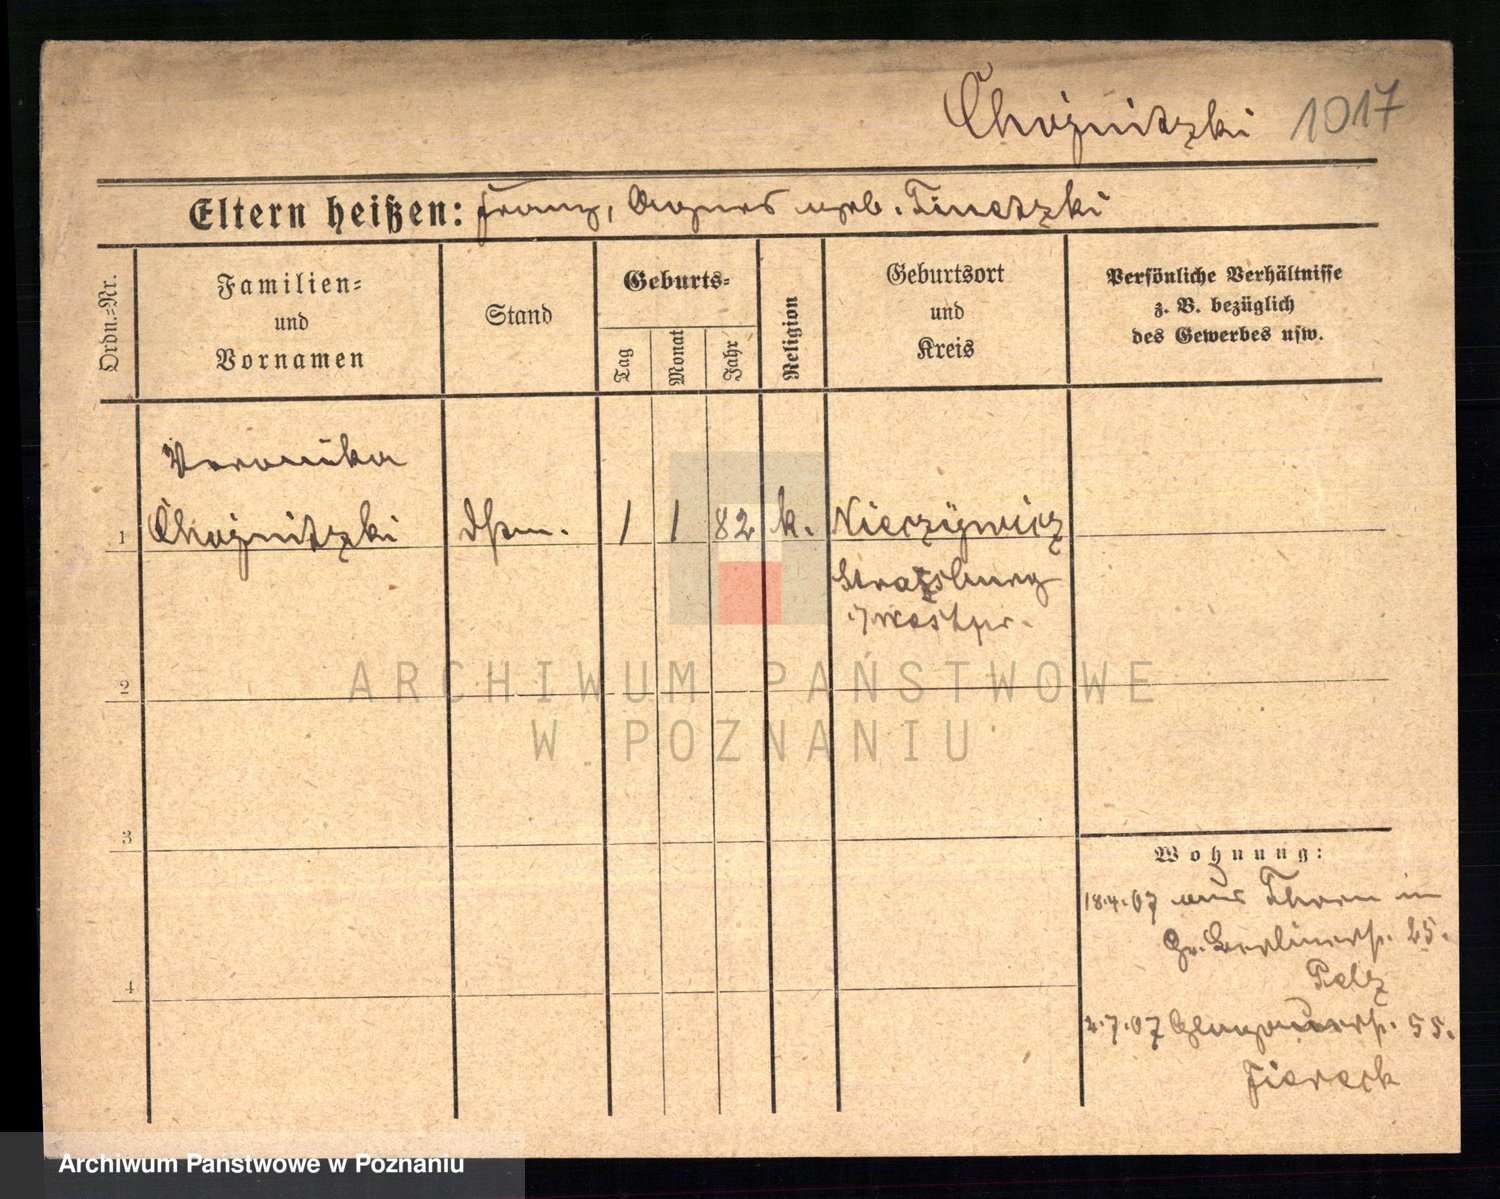 Choznitzki 1017
Eltern heißen: Franz, Agnes geb. Tinetzki
Ordn.-Nr.
Familien-
und
Vornamen
Stand
Geburts-
Tag
Monat
Jahr
Religion
Geburtsort
und
Kreis
Persönliche Verhältnisse
z. B. bezüglich
des Gewerbes usw.
Veronika
1 Choznitzki 1 1 82 k.
Strassburg
Westpr.
2
ARCHIWUM PAŃSTWOWE
W POZNANIU
3
Wohnung:
18.4.07 aus Thorn in
Gr. Berlinerstr. 25.
Pelz
4
2.7.07 Glogauerstr. 55.
Fiereck
Archiwum Państwowe w Poznaniu